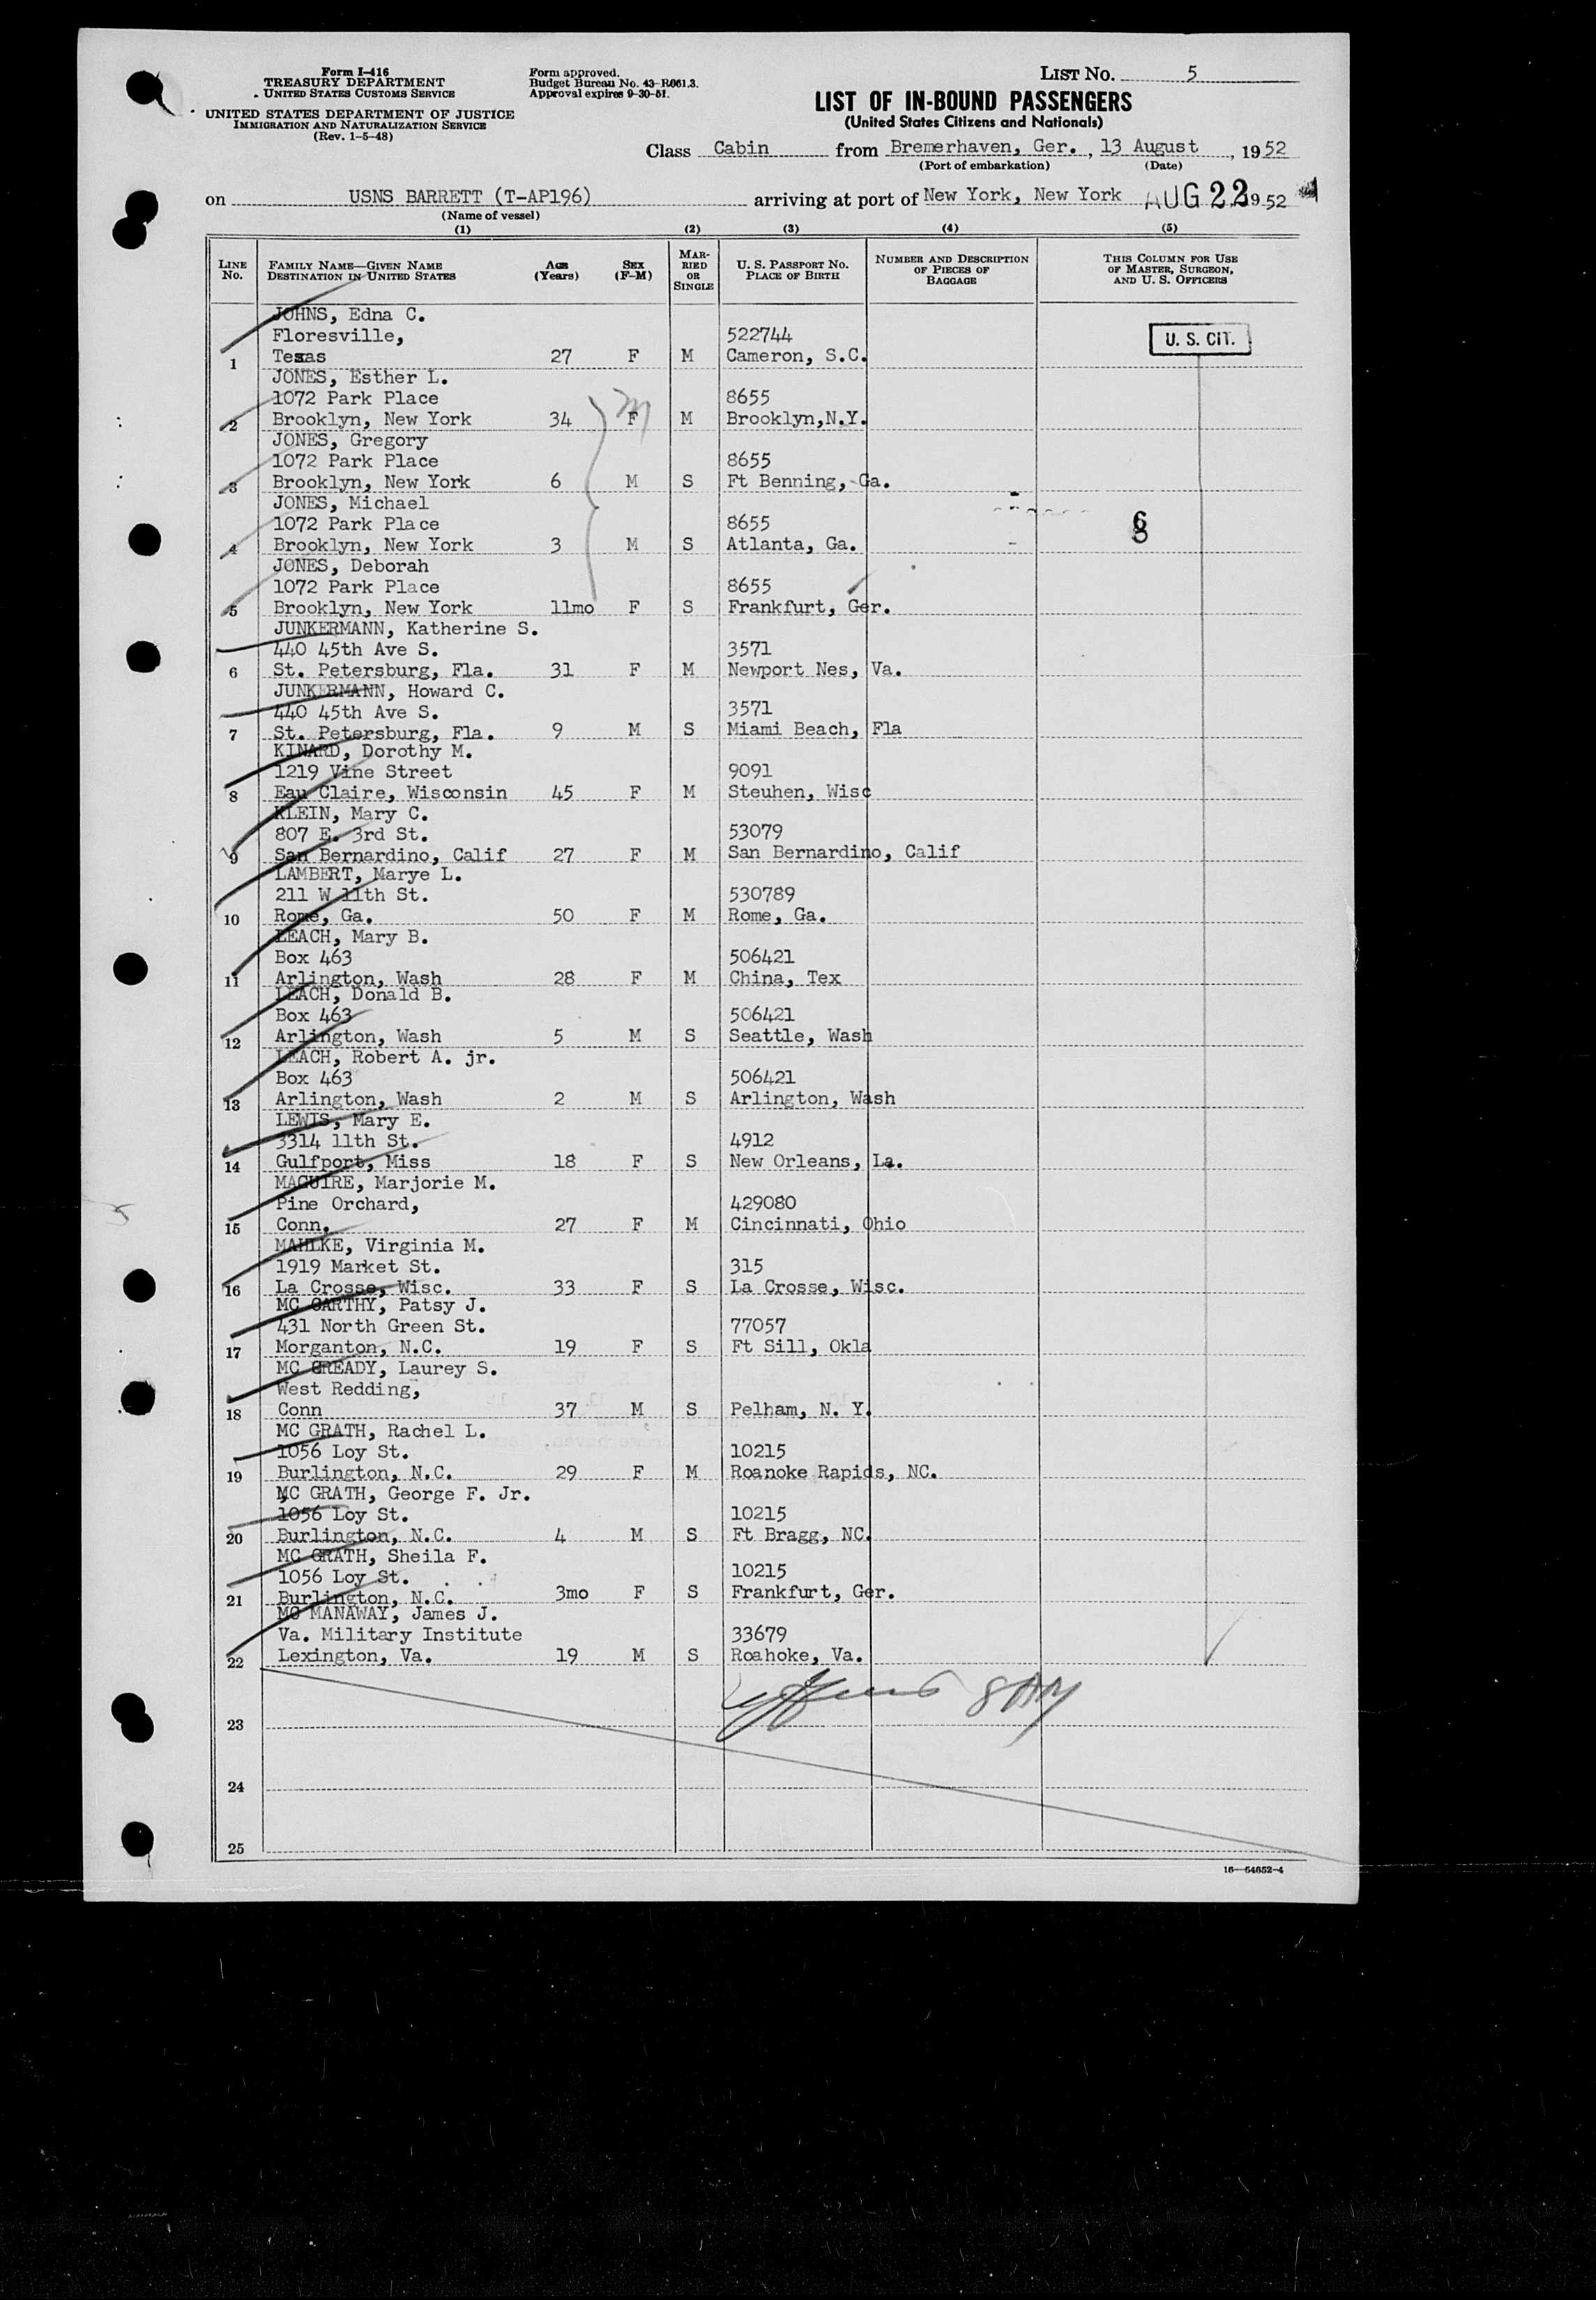 Form I-416
TREASURY DEPARTMENT
UNITED STATES CUSTOMS SERVICE
UNITED STATES DEPARTMENT OF JUSTICE
IMMIGRATION AND NATURALIZATION SERVICE
(Rev. 1-5-48)
Form approved.
Budget Bureau No. 43-R061.3.
Approval expires 9-30-51.
LIST NO. 5
LIST OF IN-BOUND PASSENGERS
(United States Citizens and Nationals)
Class Cabin from Bremerhaven, Ger. , 13 August , 1952
(Port of embarkation) (Date)
on USNS BARRETT (T-AP196) arriving at port of New York, New York AUG 22 1952
(Name of vessel)
(1) (2) (3) (4) (5)
LINE NO. FAMILY NAME—GIVEN NAME DESTINATION IN UNITED STATES AGE (Years) SEX (F-M) MARRIED OR SINGLE U. S. PASSPORT NO. PLACE OF BIRTH NUMBER AND DESCRIPTION OF PIECES OF BAGGAGE THIS COLUMN FOR USE OF MASTER, SURGEON, AND U. S. OFFICERS
JOHNS, Edna C.
Floresville, 522744 U. S. CIT.
1 Texas 27 F M Cameron, S.C.
JONES, Esther L.
1072 Park Place 8655
2 Brooklyn, New York 34 F M Brooklyn,N.Y.
JONES, Gregory
1072 Park Place 8655
3 Brooklyn, New York 6 M S Ft Benning, Ga.
JONES, Michael
1072 Park Place 8655
4 Brooklyn, New York 3 M S Atlanta, Ga.
JONES, Deborah
1072 Park Place 8655
5 Brooklyn, New York 11mo F S Frankfurt, Ger.
JUNKERMANN, Katherine S.
440 45th Ave S. 3571
6 St. Petersburg, Fla. 31 F M Newport Nes, Va.
JUNKERMANN, Howard C.
440 45th Ave S. 3571
7 St. Petersburg, Fla. 9 M S Miami Beach, Fla
KINARD, Dorothy M.
1219 Vine Street 9091
8 Eau Claire, Wisconsin 45 F M Steuhen, Wisc
KLEIN, Mary C.
807 E. 3rd St. 53079
9 San Bernardino, Calif 27 F M San Bernardino, Calif
LAMBERT, Marye L.
211 W 11th St. 530789
10 Rome, Ga. 50 F M Rome, Ga.
LEACH, Mary B.
Box 463 506421
11 Arlington, Wash 28 F M China, Tex
LEACH, Donald B.
Box 463 506421
12 Arlington, Wash 5 M S Seattle, Wash
LEACH, Robert A. jr.
Box 463 506421
13 Arlington, Wash 2 M S Arlington, Wash
LEWIS, Mary E.
3314 11th St. 4912
14 Gulfport, Miss 18 F S New Orleans, La.
MAGUIRE, Marjorie M.
Pine Orchard, 429080
15 Conn. 27 F M Cincinnati, Ohio
MAHLKE, Virginia M.
1919 Market St. 315
16 La Crosse, Wisc. 33 F S La Crosse, Wisc.
MC CARTHY, Patsy J.
431 North Green St. 77057
17 Morganton, N.C. 19 F S Ft Sill, Okla
MC CREADY, Laurey S.
West Redding,
18 Conn 37 M S Pelham, N. Y.
MC GRATH, Rachel L.
1056 Loy St. 10215
19 Burlington, N.C. 29 F M Roanoke Rapids, NC.
MC GRATH, George F. Jr.
1056 Loy St. 10215
20 Burlington, N.C. 4 M S Ft Bragg, NC.
MC GRATH, Sheila F.
1056 Loy St. 10215
21 Burlington, N.C. 3mo F S Frankfurt, Ger.
MC MANAWAY, James J.
Va. Military Institute 33679
22 Lexington, Va. 19 M S Roahoke, Va.
23
24
25
16—54652-4